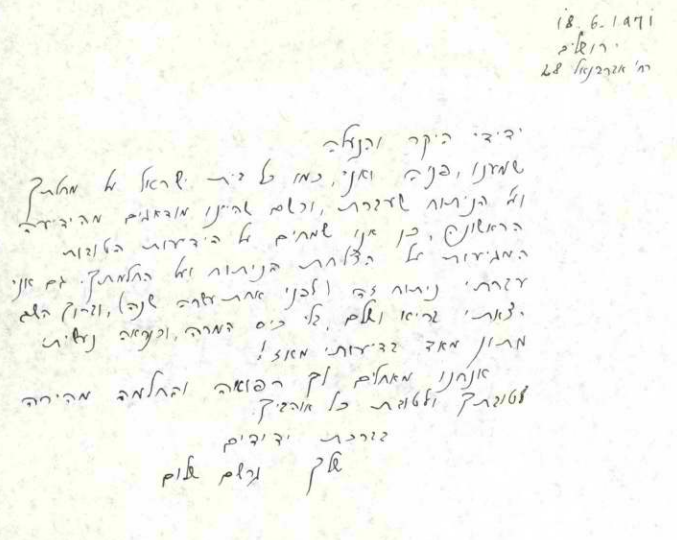 18.6.1971
ירושלים
רח' אברבנאל 28
ידידי היקר והנעלה
שמענו, פניה ואני, כמו כל בית ישראל על מחלתך
ועל הניתוח שעברת, וכשם שהיינו מודאגים מהידיעה
הראשונה, כן אנו שמחים על הידיעות הטובות
המגיעות על הצלחת הניתוח ועל החלמתך. גם אני
עברתי ניתוח זה (לפני אחת עשרה שנה), וברוך השם
יצאתי בריא ושלם, בלי כיס המרה, וכנראה נעשיתי
מתון מאד בדיעותי מאז!
אנחנו מאחלים לך רפואה והחלמה מהירה
לטובתך ולטובת כל אוהביך.
בברכת ידידים
שלך גרשם שלום